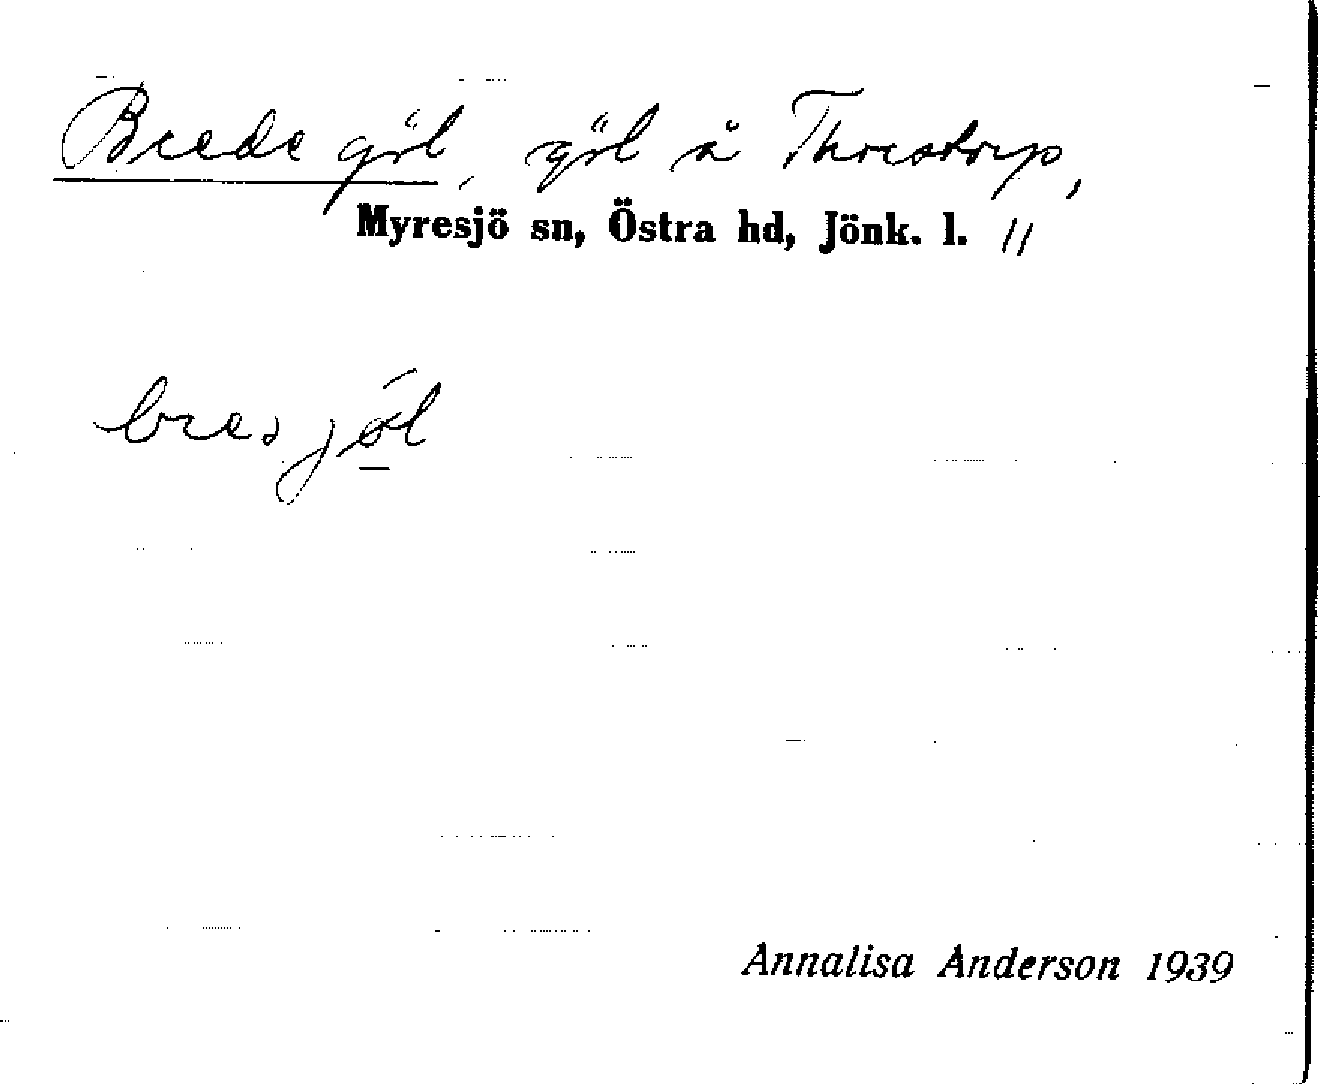 Bredegöl, göl å Threstorp,
Myresjö sn, Östra hd, Jönk. l. 11
bređ jøĺ
Annalisa Anderson 1939